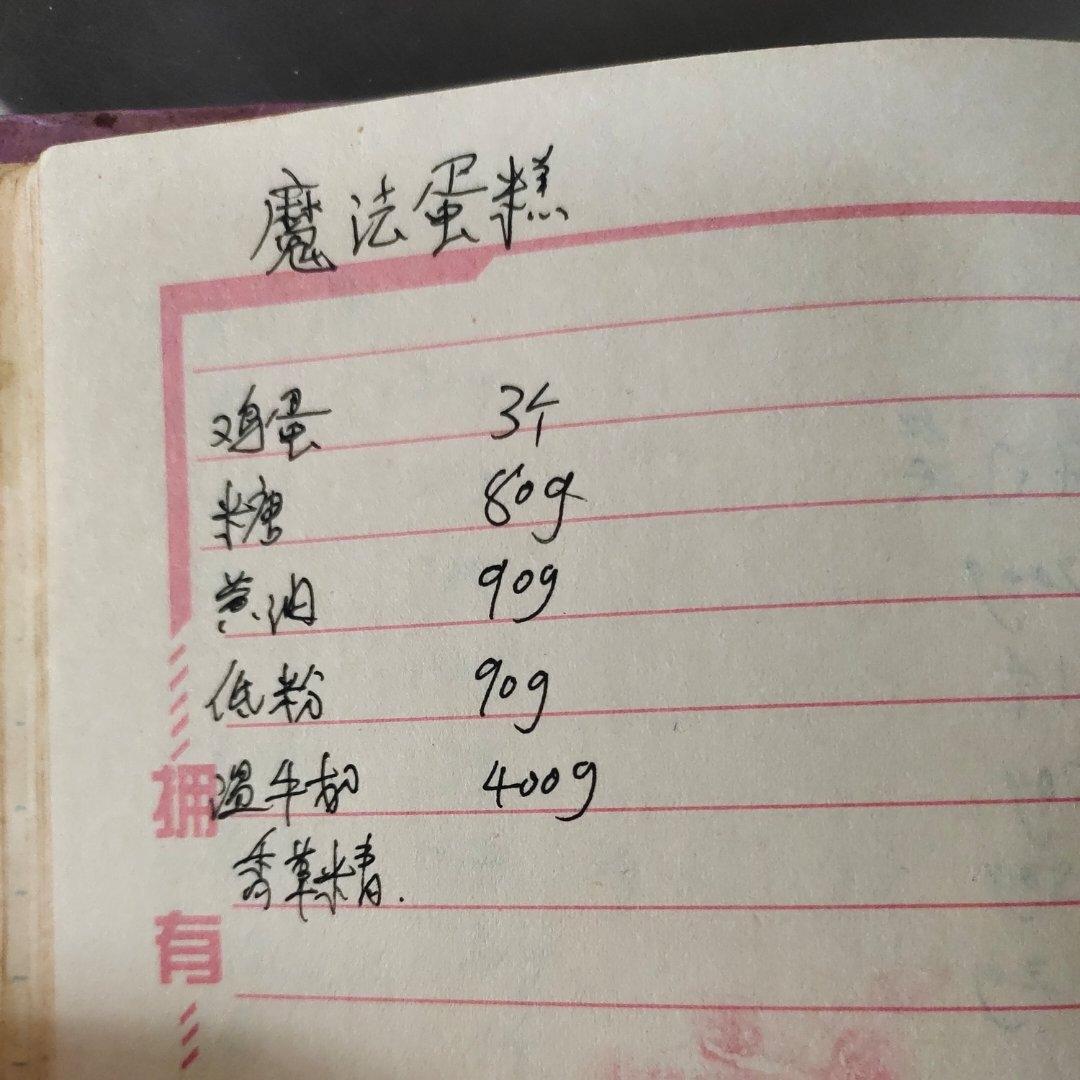 魔法蛋糕
鸡蛋 3个
糖 80g
黄油 90g
低粉 90g
温牛奶 400g
香草精.
拥
有